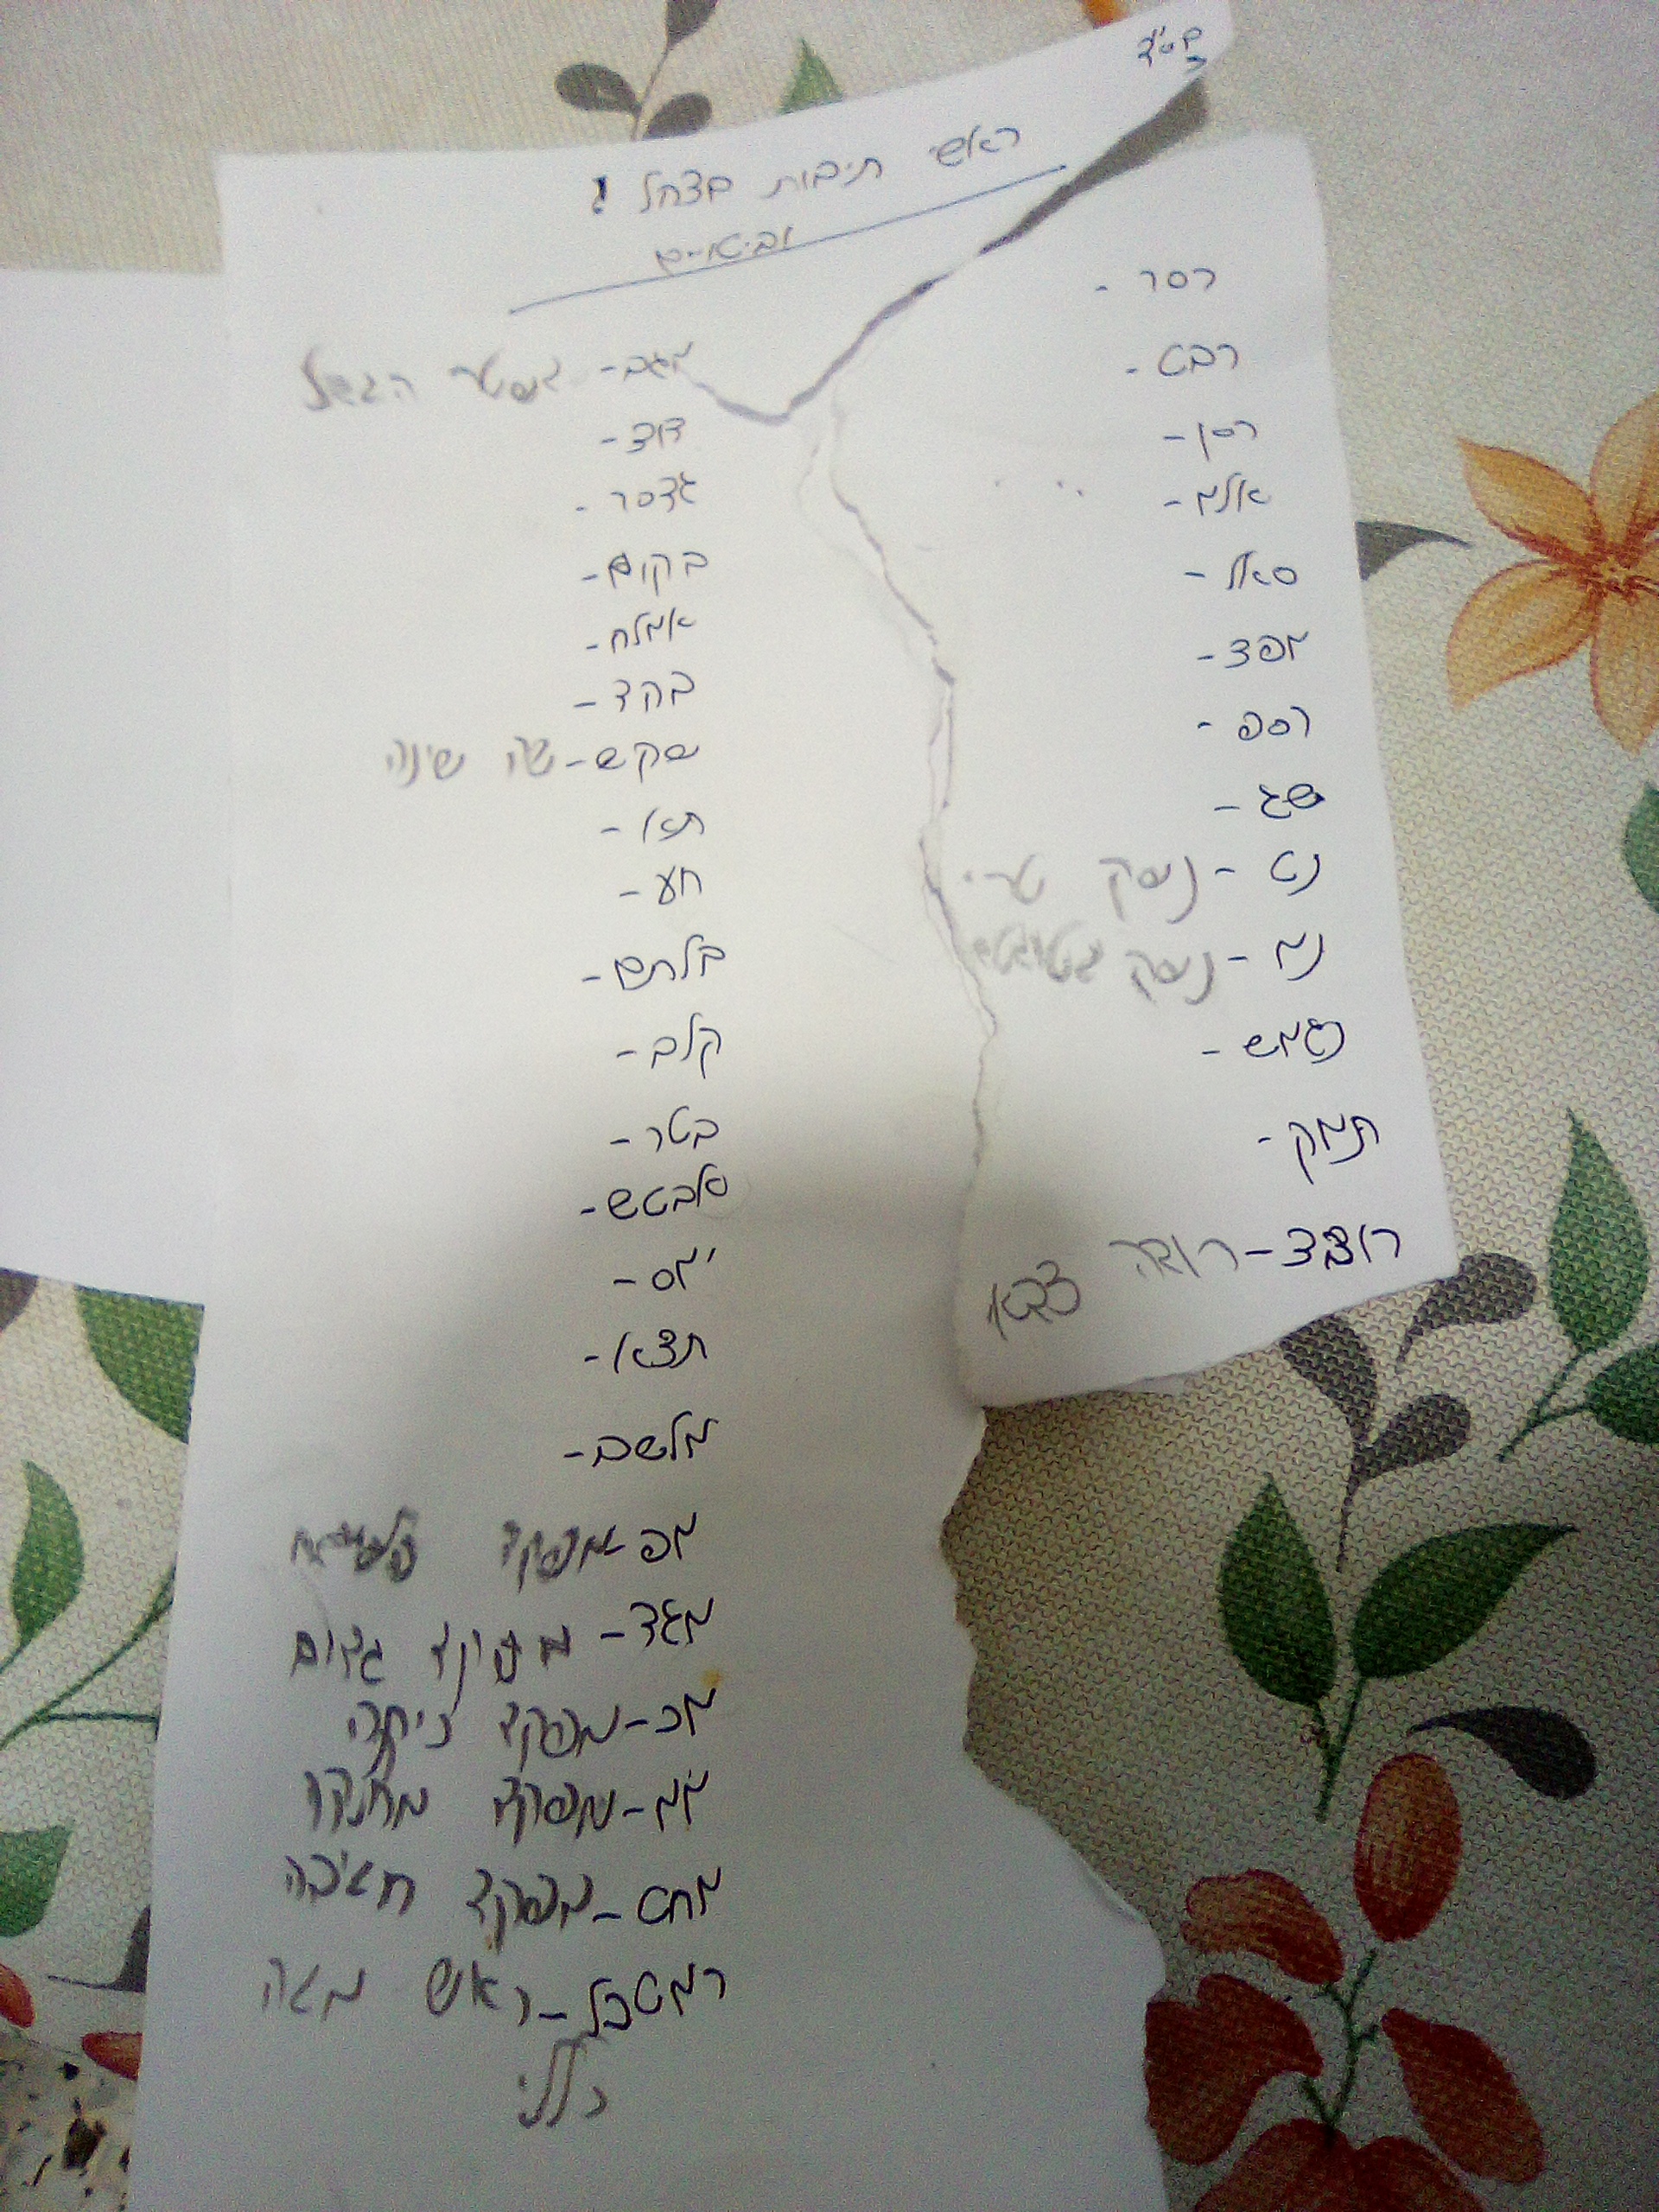 בס"ד
ראשי תיבות בצהל !
וביטויים
רסר -
רבט -
רסן -
אלמ -
סאל -
מפצ -
רספ -
שג -
נט -
נמ -
נגמש -
תמק -
רובצ - רובה צבאי
מגב - משמר הגבול
דוצ -
גדסר -
בקום -
אמלח -
בהד -
שקש - שק שינה
תגו -
חע -
בלתם -
קלב -
בטר -
סלבטש -
ימס -
תצאן -
מלשב -
מפ - מפקד
מגד - מפקד גדוד
מכ - מפקד כיתה
ממ - מפקד מחלקה
מחט - מפקד חטיבה
רמטכל - ראש מטה
כללי